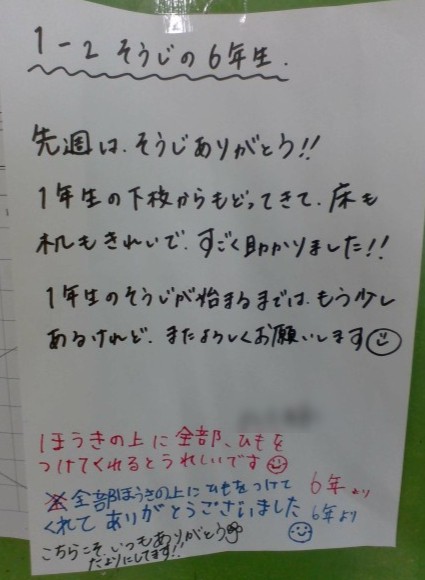 1-2 そうじの6年生.
先週は、そうじありがとう!!
1年生の下校からもどってきて、床も
机もきれいで、すごく助かりました!!
1年生のそうじが始まるまでは、もう少し
あるけれど、またよろしくお願いします
1ほうきの上に全部、ひもを
つけてくれるとうれしいです
6年より
※全部ほうきの上にひもをつけて
くれてありがとうございました
6年より
こちらこそ、いつもありがとう
たよりにしてます!!